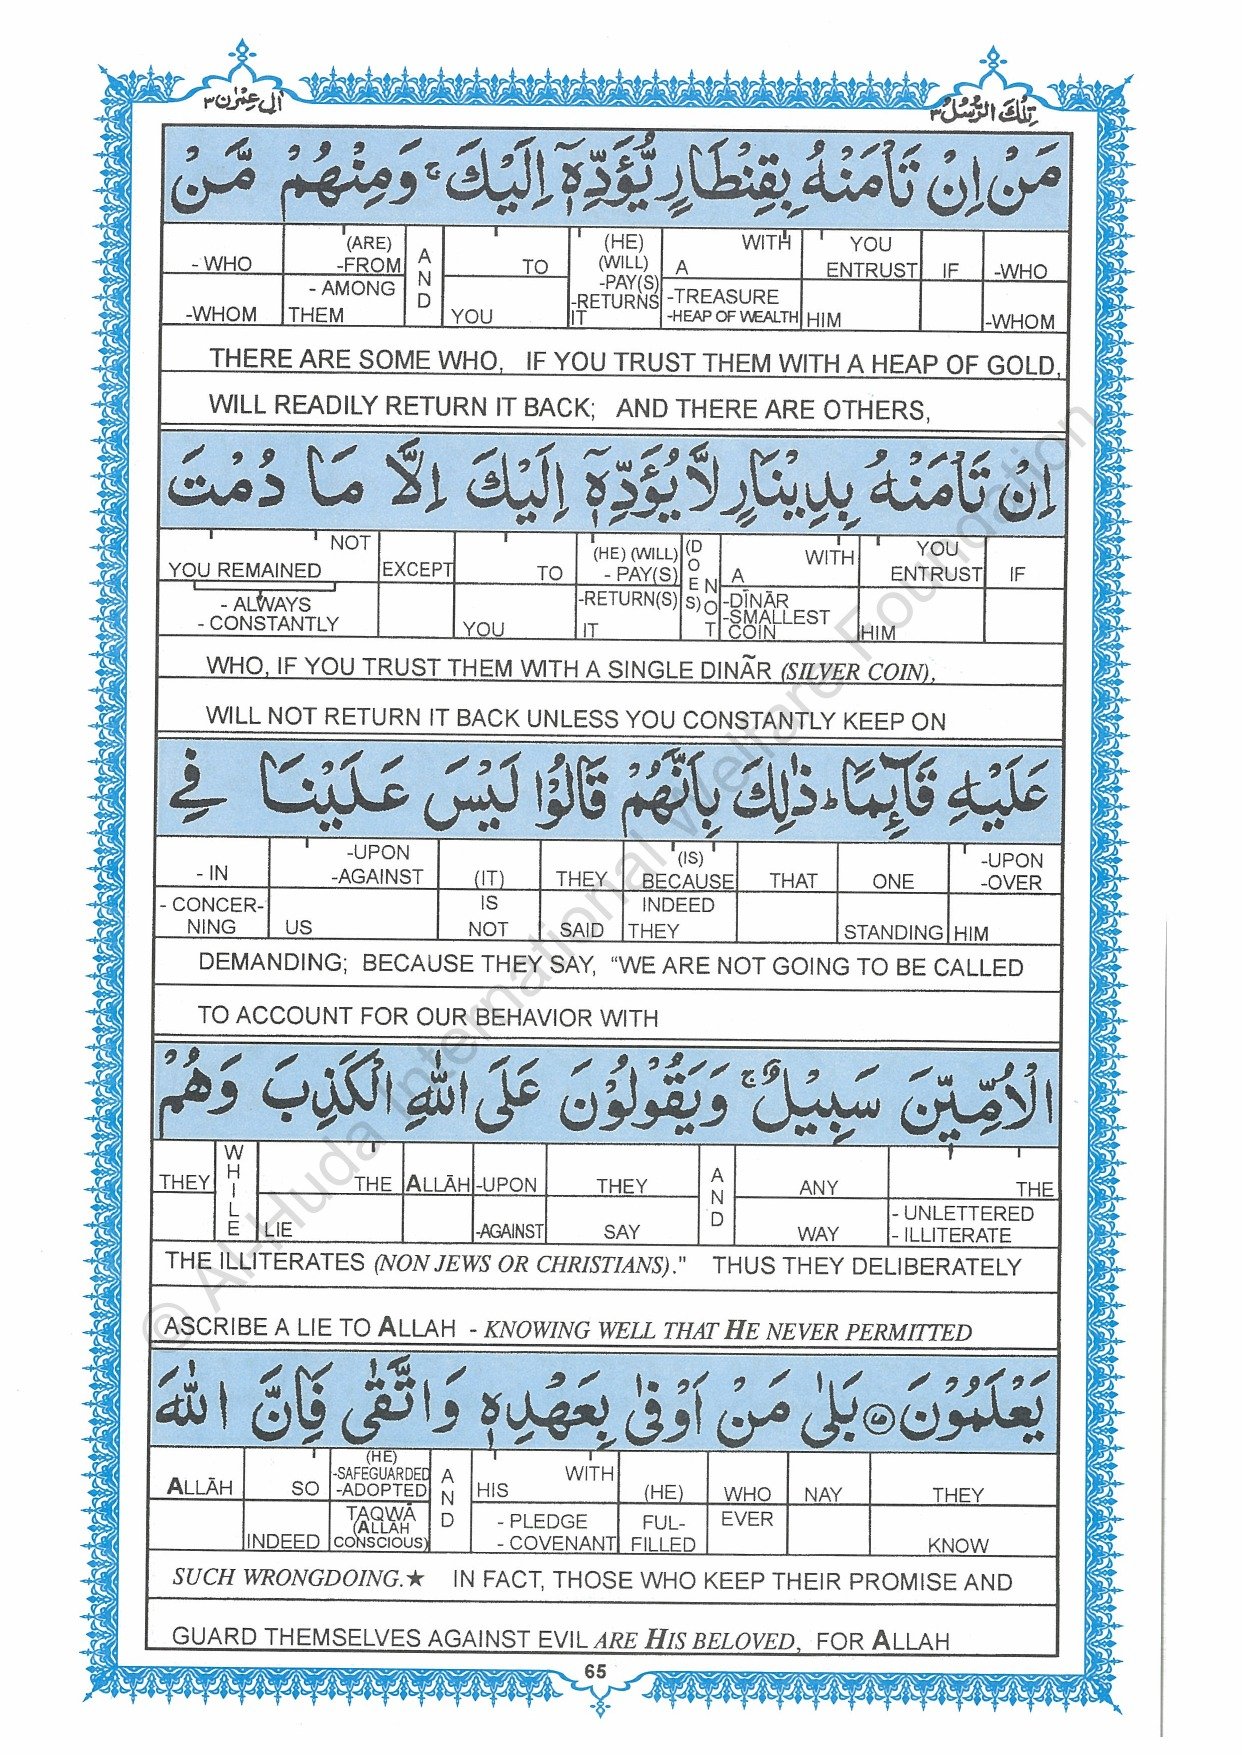 تِلْكَ الرُّسُلُ ٣
اٰلِ عِمْرٰن ٣
مَنْ اِنْ تَاْمَنْهُ بِقِنْطَارٍ يُّؤَدِّهٖٓ اِلَيْكَ ۚ وَمِنْهُمْ مَّنْ
-WHO (ARE) -FROM AND TO (HE) (WILL) -PAY(S) WITH A YOU ENTRUST IF -WHO
-WHOM - AMONG THEM YOU -RETURNS IT -TREASURE -HEAP OF WEALTH HIM -WHOM
THERE ARE SOME WHO, IF YOU TRUST THEM WITH A HEAP OF GOLD,
WILL READILY RETURN IT BACK; AND THERE ARE OTHERS,
اِنْ تَاْمَنْهُ بِدِيْنَارٍ لَّا يُؤَدِّهٖٓ اِلَيْكَ اِلَّا مَا دُمْتَ
NOT YOU REMAINED EXCEPT TO (HE) (WILL) - PAY(S) (DOES) NOT WITH A YOU ENTRUST IF
- ALWAYS - CONSTANTLY YOU -RETURN(S) IT -DĪNĀR -SMALLEST COIN HIM
WHO, IF YOU TRUST THEM WITH A SINGLE DINÃR (SILVER COIN),
WILL NOT RETURN IT BACK UNLESS YOU CONSTANTLY KEEP ON
عَلَيْهِ قَآئِمًا ؕ ذٰلِكَ بِاَنَّهُمْ قَالُوْا لَيْسَ عَلَيْنَا فِي
- IN -UPON -AGAINST (IT) THEY (IS) BECAUSE THAT ONE -UPON -OVER
- CONCER-NING US IS NOT SAID INDEED THEY STANDING HIM
DEMANDING; BECAUSE THEY SAY, “WE ARE NOT GOING TO BE CALLED
TO ACCOUNT FOR OUR BEHAVIOR WITH
الْاُمِّيّٖنَ سَبِيْلٌ ۚ وَيَقُوْلُوْنَ عَلَى اللّٰهِ الْكَذِبَ وَهُمْ
THEY WHILE THE ALLĀH -UPON THEY AND ANY THE
LIE -AGAINST SAY WAY - UNLETTERED - ILLITERATE
THE ILLITERATES (NON JEWS OR CHRISTIANS)." THUS THEY DELIBERATELY
ASCRIBE A LIE TO ALLAH - KNOWING WELL THAT HE NEVER PERMITTED
يَعْلَمُوْنَ ۝٧٥ بَلٰى مَنْ اَوْفٰى بِعَهْدِهٖ وَاتَّقٰى فَاِنَّ اللّٰهَ
ALLĀH SO (HE) -SAFEGUARDED -ADOPTED AND HIS WITH (HE) WHO NAY THEY
INDEED TAQWĀ (ALLĀH CONSCIOUS) - PLEDGE - COVENANT FUL-FILLED EVER KNOW
SUCH WRONGDOING.★ IN FACT, THOSE WHO KEEP THEIR PROMISE AND
GUARD THEMSELVES AGAINST EVIL ARE HIS BELOVED, FOR ALLAH
65
© Al-Huda International Welfare Foundation